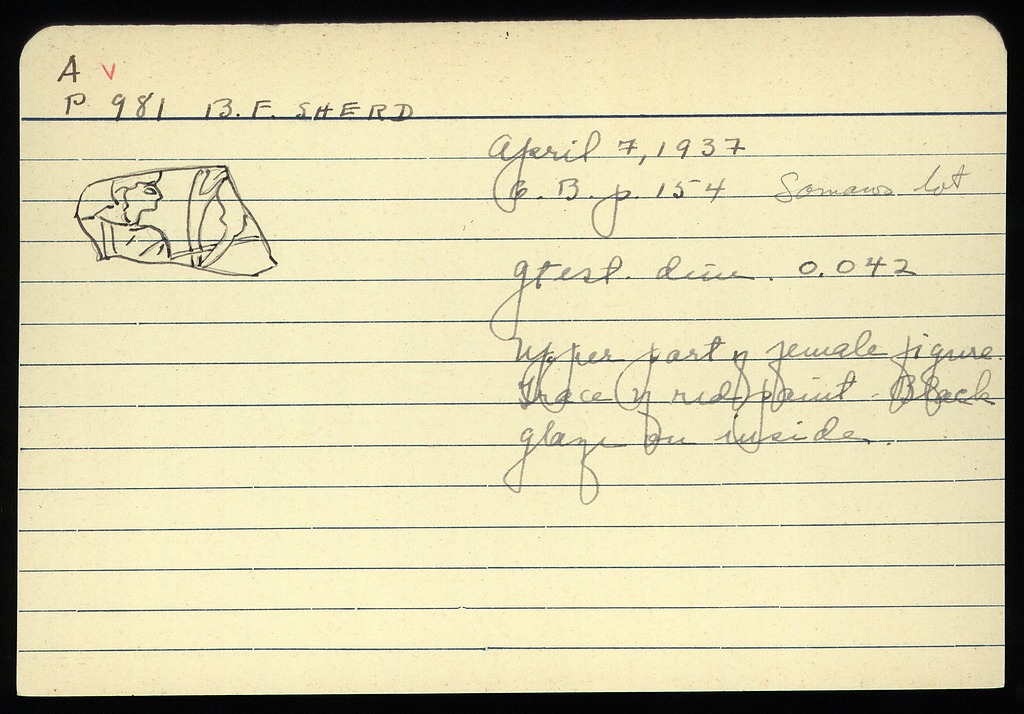 A v
P 981 B.F. SHERD
April 7, 1937
B. p. 154 lot
gtest. dim. 0.042
Upper part of female figure.
Trace of red paint. Black
glaze on inside.